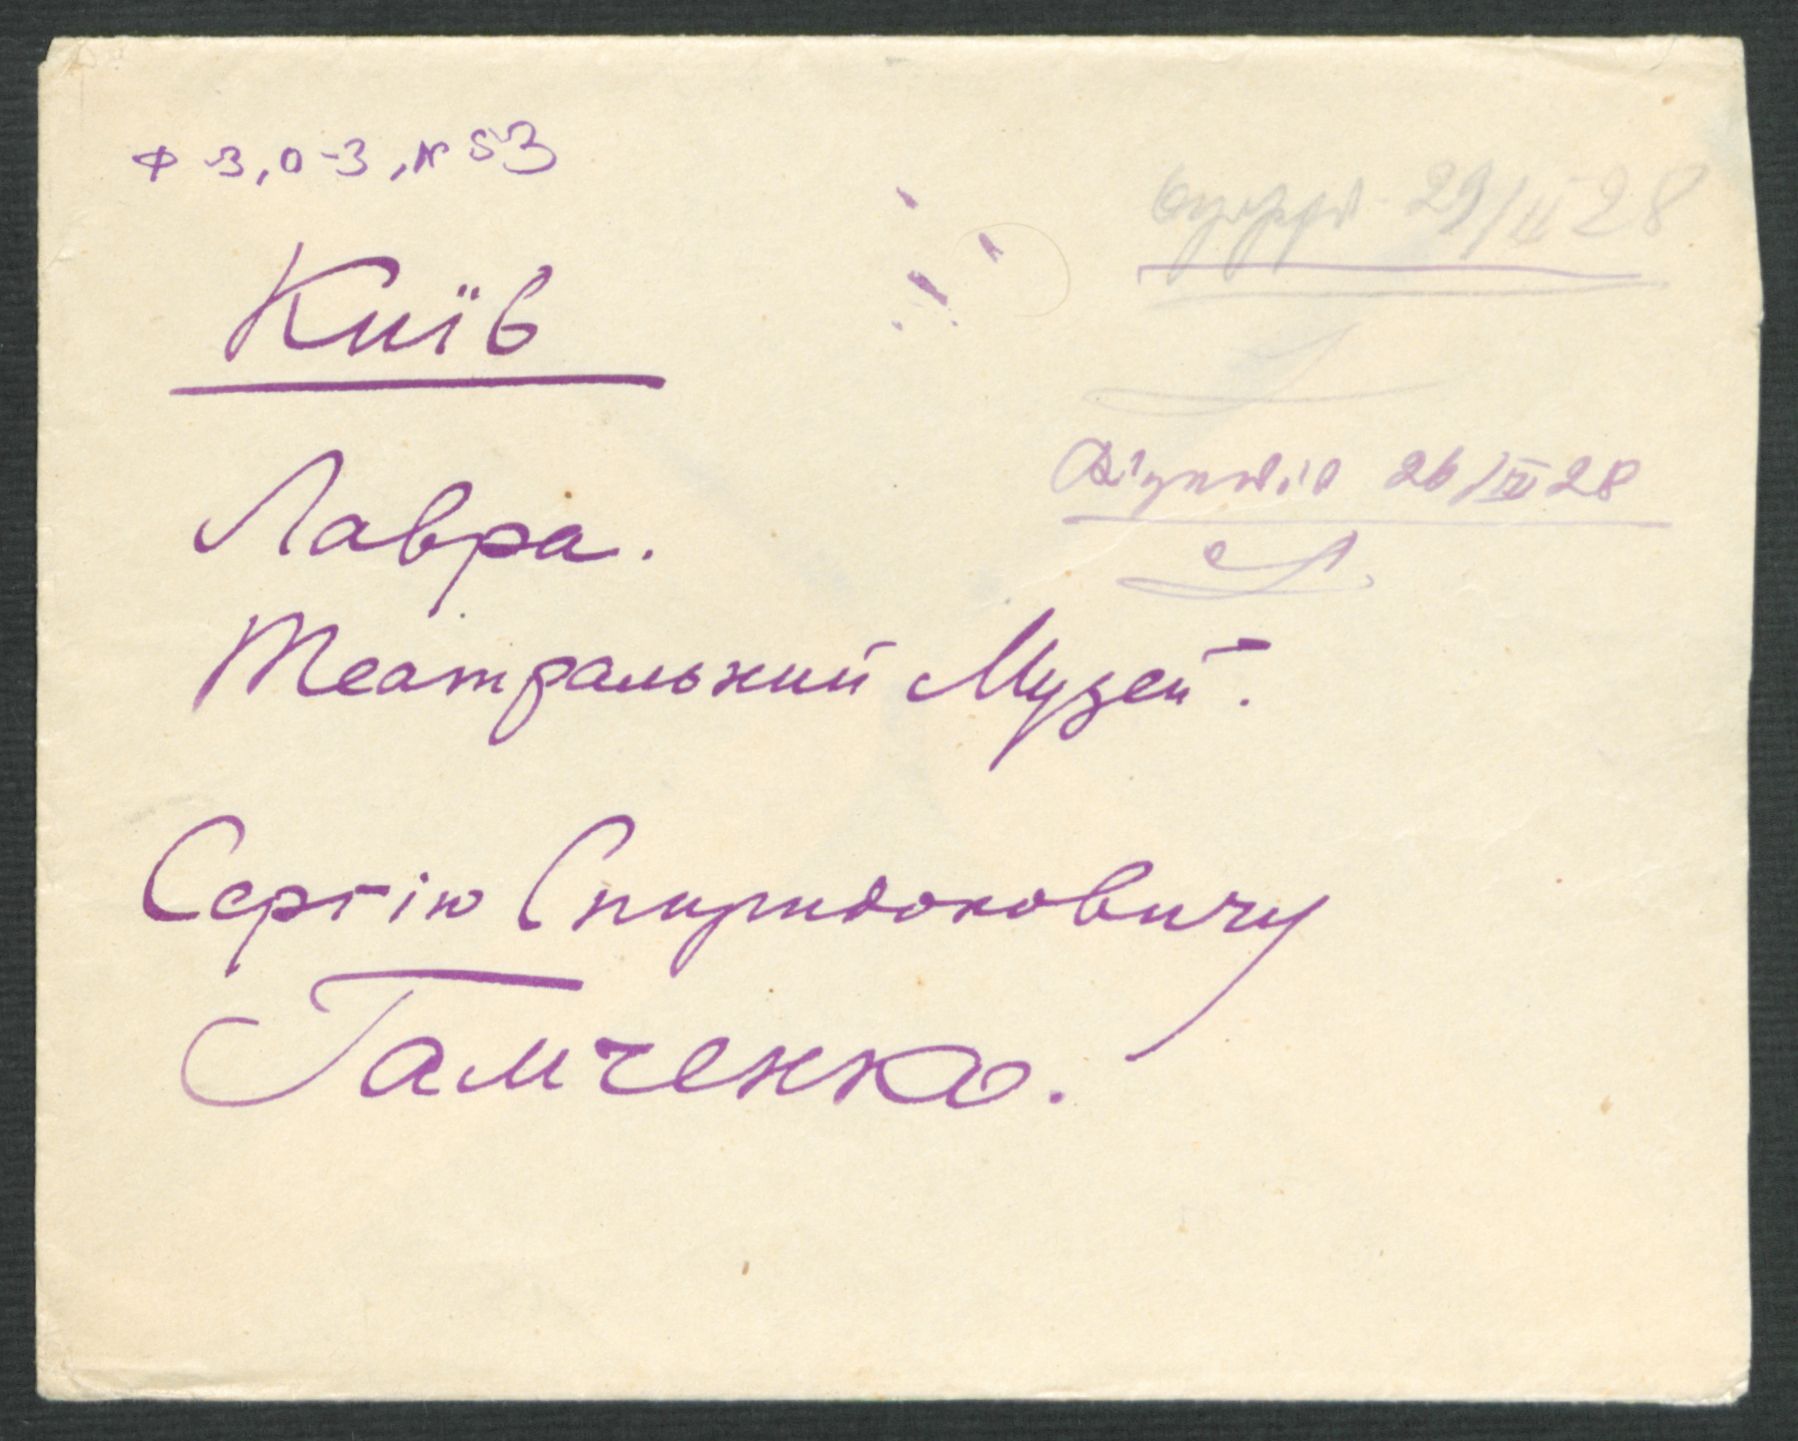 Ф-3, О-3, № 53
29/II 28
Київ
26/III 28
Лавра.
Театральний Музей.
Сергію Спиридоновичу
Гамченко.